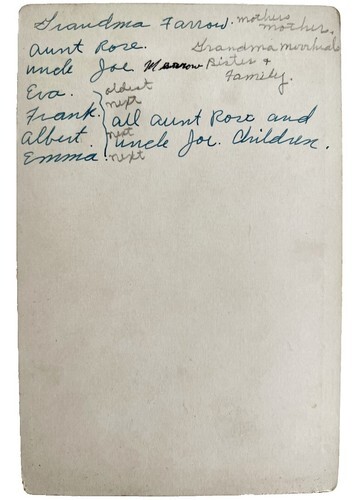 Grandma Farrow. mothers mother.
Aunt Rose. Grandma Merrihads
uncle Joe Sister +
Family.
Eva. oldest
Frank. next all aunt Rose and
Albert. next uncle Joe. Children.
Emma. next